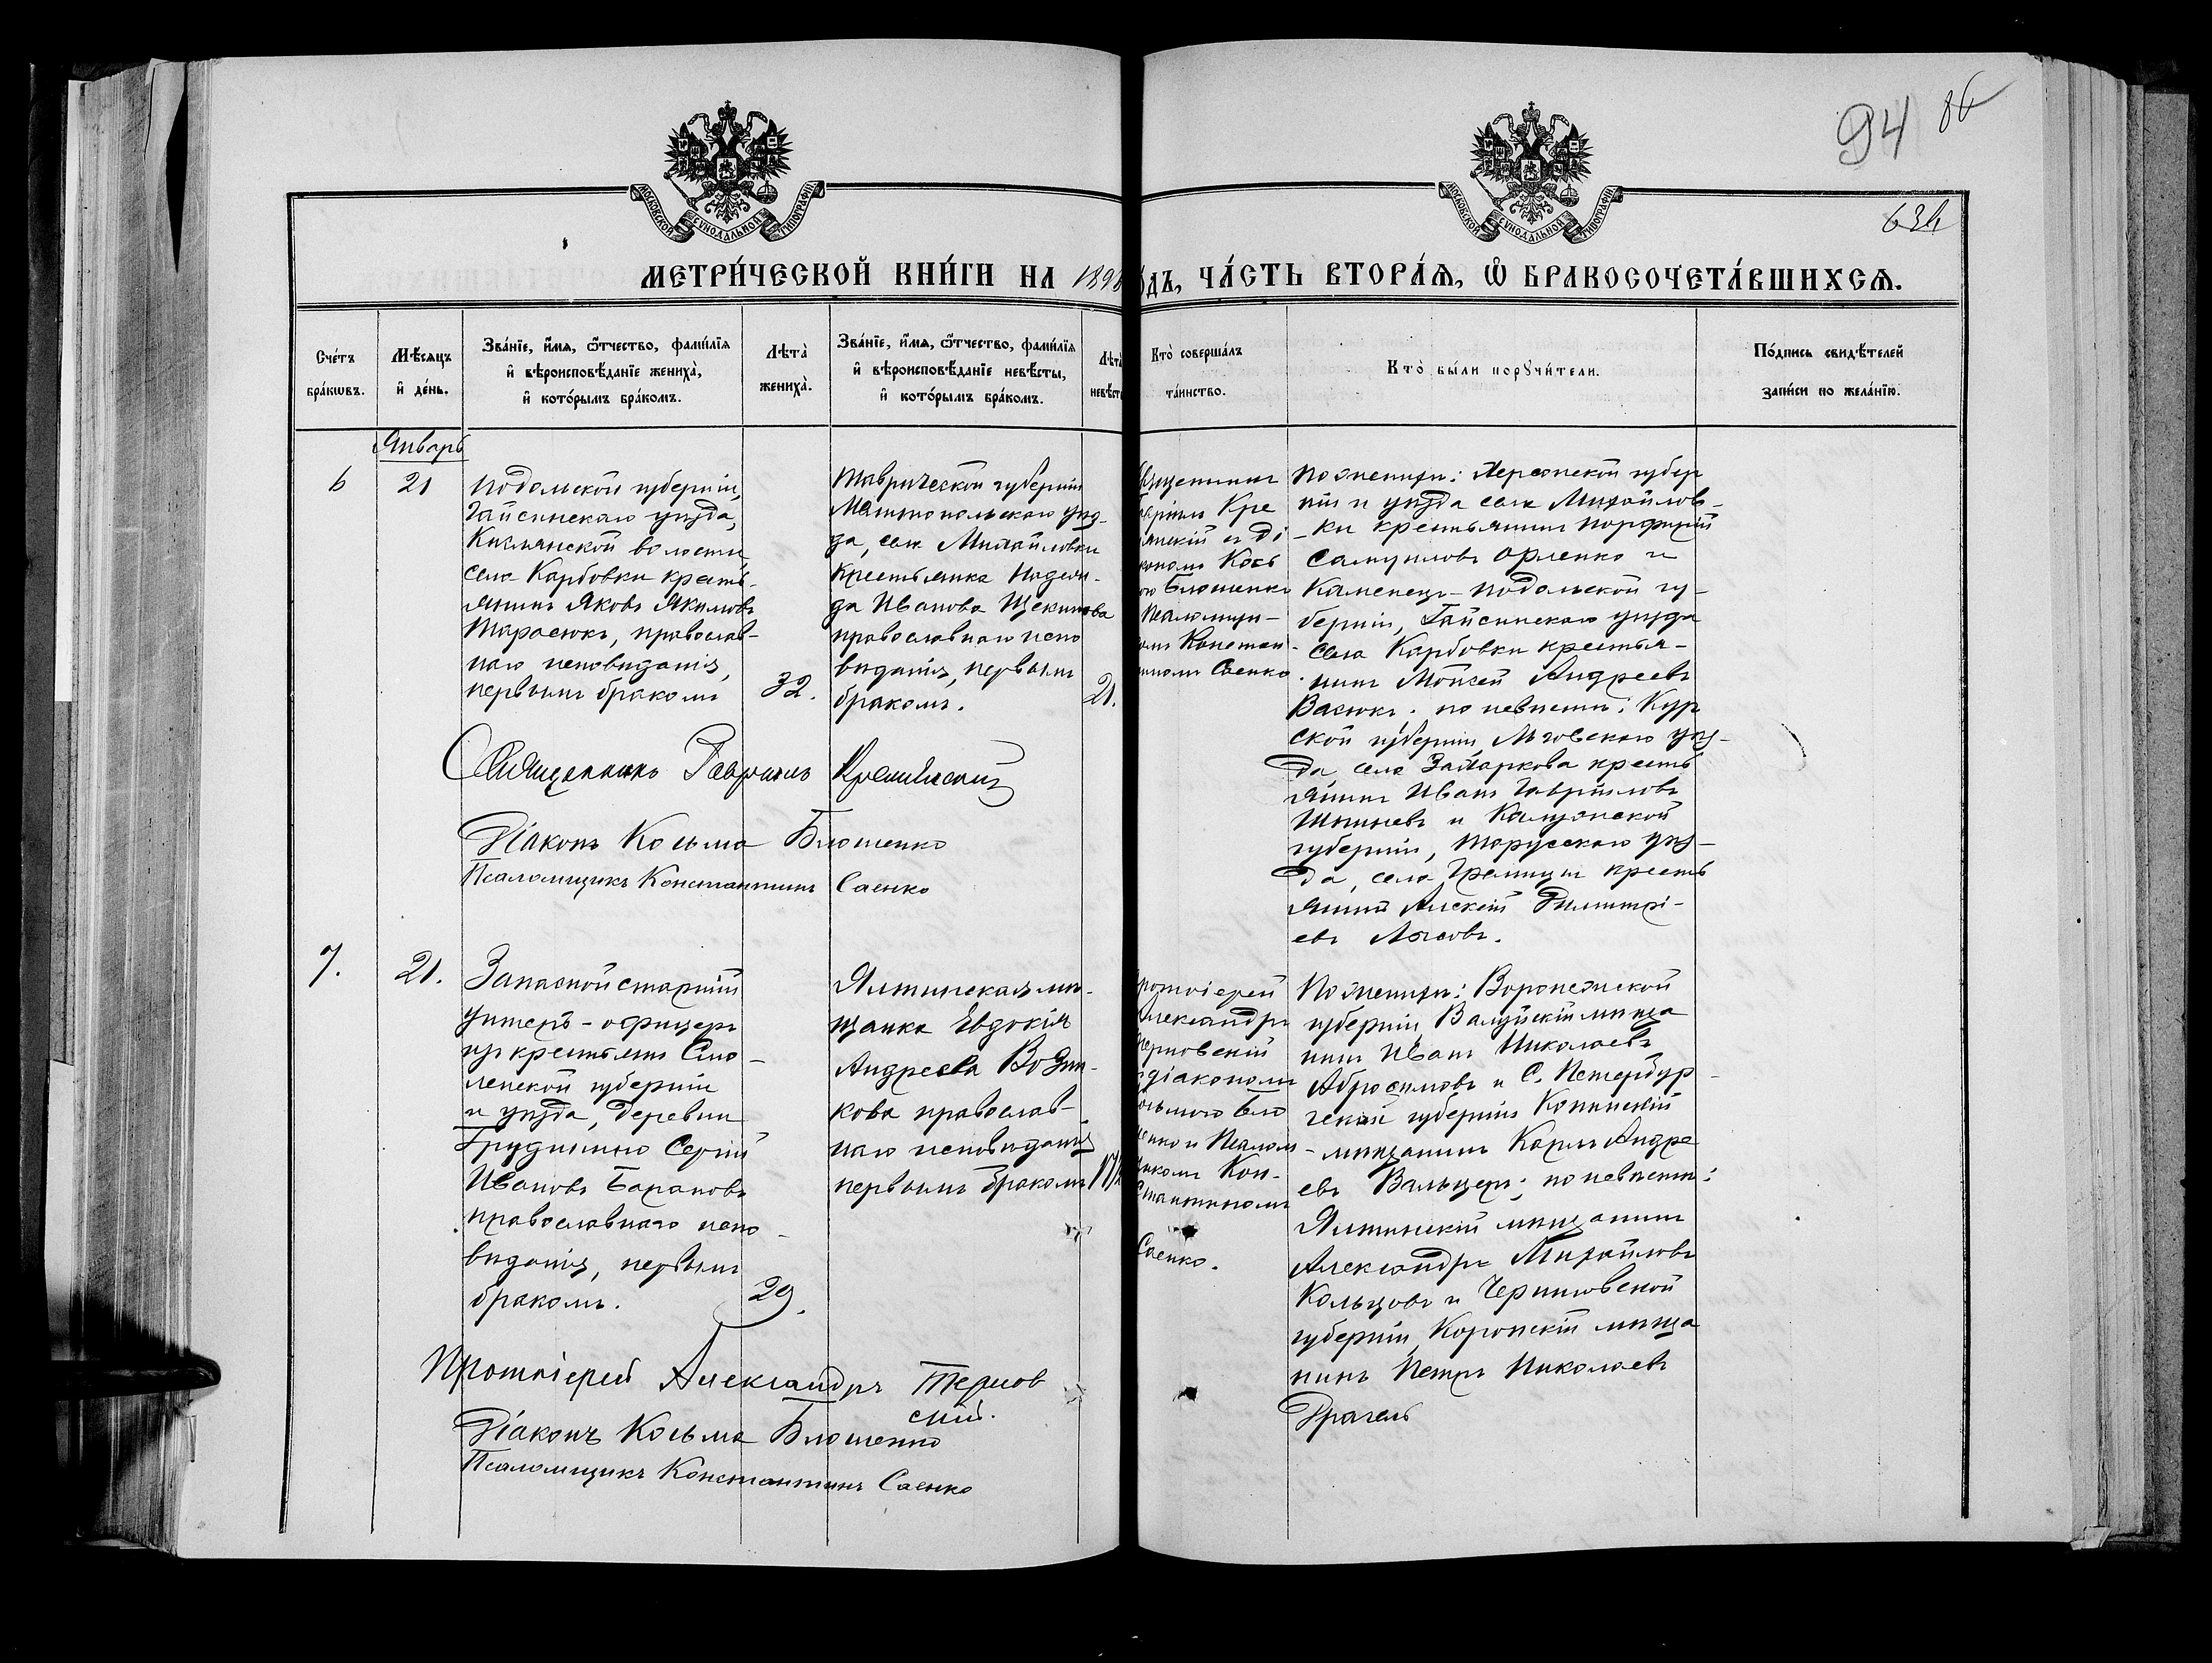 94 86
634
МОСКОВСКОЙ СѴНОДАЛЬНОЙ ТИПОГРАФІИ
МОСКОВСКОЙ СѴНОДАЛЬНОЙ ТИПОГРАФІИ
МЕТРИ́ЧЕСКОЙ КНИ́ГИ НА 1898
О́ДЪ, ЧА́СТЬ ВТОРА́Ѧ, Ѽ БРАКОСОЧЕТА́ВШИХСѦ.
Сче́тъ
бра́кѡвъ.
Мѣ́сѧцъ
и҆ де́нь.
Зва́нїе, и҆́мѧ, ѻ҆́тчество, фами́лїѧ
и҆ вѣроисповѣ́данїе жениха̀,
и҆ кото́рымъ бра́комъ.
Лѣта̀
жениха̀.
Зва́нїе, и҆́мѧ, ѻ҆́тчество, фами́лїѧ
и҆ вѣроисповѣ́данїе невѣ́сты,
и҆ кото́рымъ бра́комъ.
Лѣта̀
невѣ́ст
Кто̀ соверша́лъ
та́инство.
Кто̀ бы́ли порꙋчи́тели.
По́дпись свидѣ́телей
за́писи по жела́нїю.
Январь
6
21
Подольской губерніи,
Гайсинскаго уѣзда,
Кивлянской волости
села Карбовки кресть-
янинъ Яковъ Якимовъ
Тарасюкъ, православ-
наго исповѣданія,
первымъ бракомъ
32.
Таврической губерніи
Мелитопольскаго уѣз-
да, села Михайловки
крестьянка Надеж-
да Иванова Щекинова
православнаго испо
вѣданія, первымъ
бракомъ.
21.
ященникъ
вріилъ Кре
янскій и Ді
кономъ Кось
ою Блошенко
Псаломщи-
омъ Констан-
иномъ Саенко.
По женихѣ: Херсонской губер
ніи и уѣзда села Михайлов-
-ки крестьянинъ Порфирій
Самуиловъ Орленко и
Каменецъ-Подольской гу-
берніи, Гайсинскаго уѣзда
села Карбовки крестья-
нинъ Моисей Андреевъ
Васюкъ. по невѣстѣ: Кур
ской губерніи, Льговскаго уѣз-
да, села Захаркова кресть
янинъ Иванъ Гавріиловъ
и Калужской
губерніи, Тарусскаго уѣз-
да, села кресть
янинъ Алексѣй Димитрі-
евъ
Священникъ Гавріилъ Кремянскій
Діаконъ Косьма Блошенко
Псаломщикъ Константинъ Саенко
7.
21.
Запасной старшій
унтеръ-офицеръ
изъ крестьянъ Смо-
ленской губерніи
и уѣзда, деревни
Грудинино Сергій
Ивановъ Барановъ
православнаго испо-
вѣданія, первымъ
бракомъ.
29.
Ялтинская мѣ-
щанка Евдокія
Андреева Возни-
кова православ-
наго исповѣданія
первымъ бракомъ
17½
ротоіерей
лександръ
ерновскій
діакономъ
осьмою Бло
енко и Псалом
икомъ Кон-
стантиномъ
Саенко.
По женихѣ: Воронежской
губерніи Валуйскій мѣща
нинъ Иванъ Николаевъ
Абросимовъ и С. Петербур-
гской губерніи Копинскій
- мѣщанинъ Карлъ Андре
евъ Вальцеръ; по невѣстѣ:
Ялтинскій мѣщанинъ
Александръ Михайловъ
Кольцовъ и Черниговской
губерніи Коропскій мѣща
нинъ Петръ Николаевъ
Драгель
Протоіерей Александръ Тернов
скій.
Діаконъ Косьма Блошенко
Псаломщикъ Константинъ Саенко